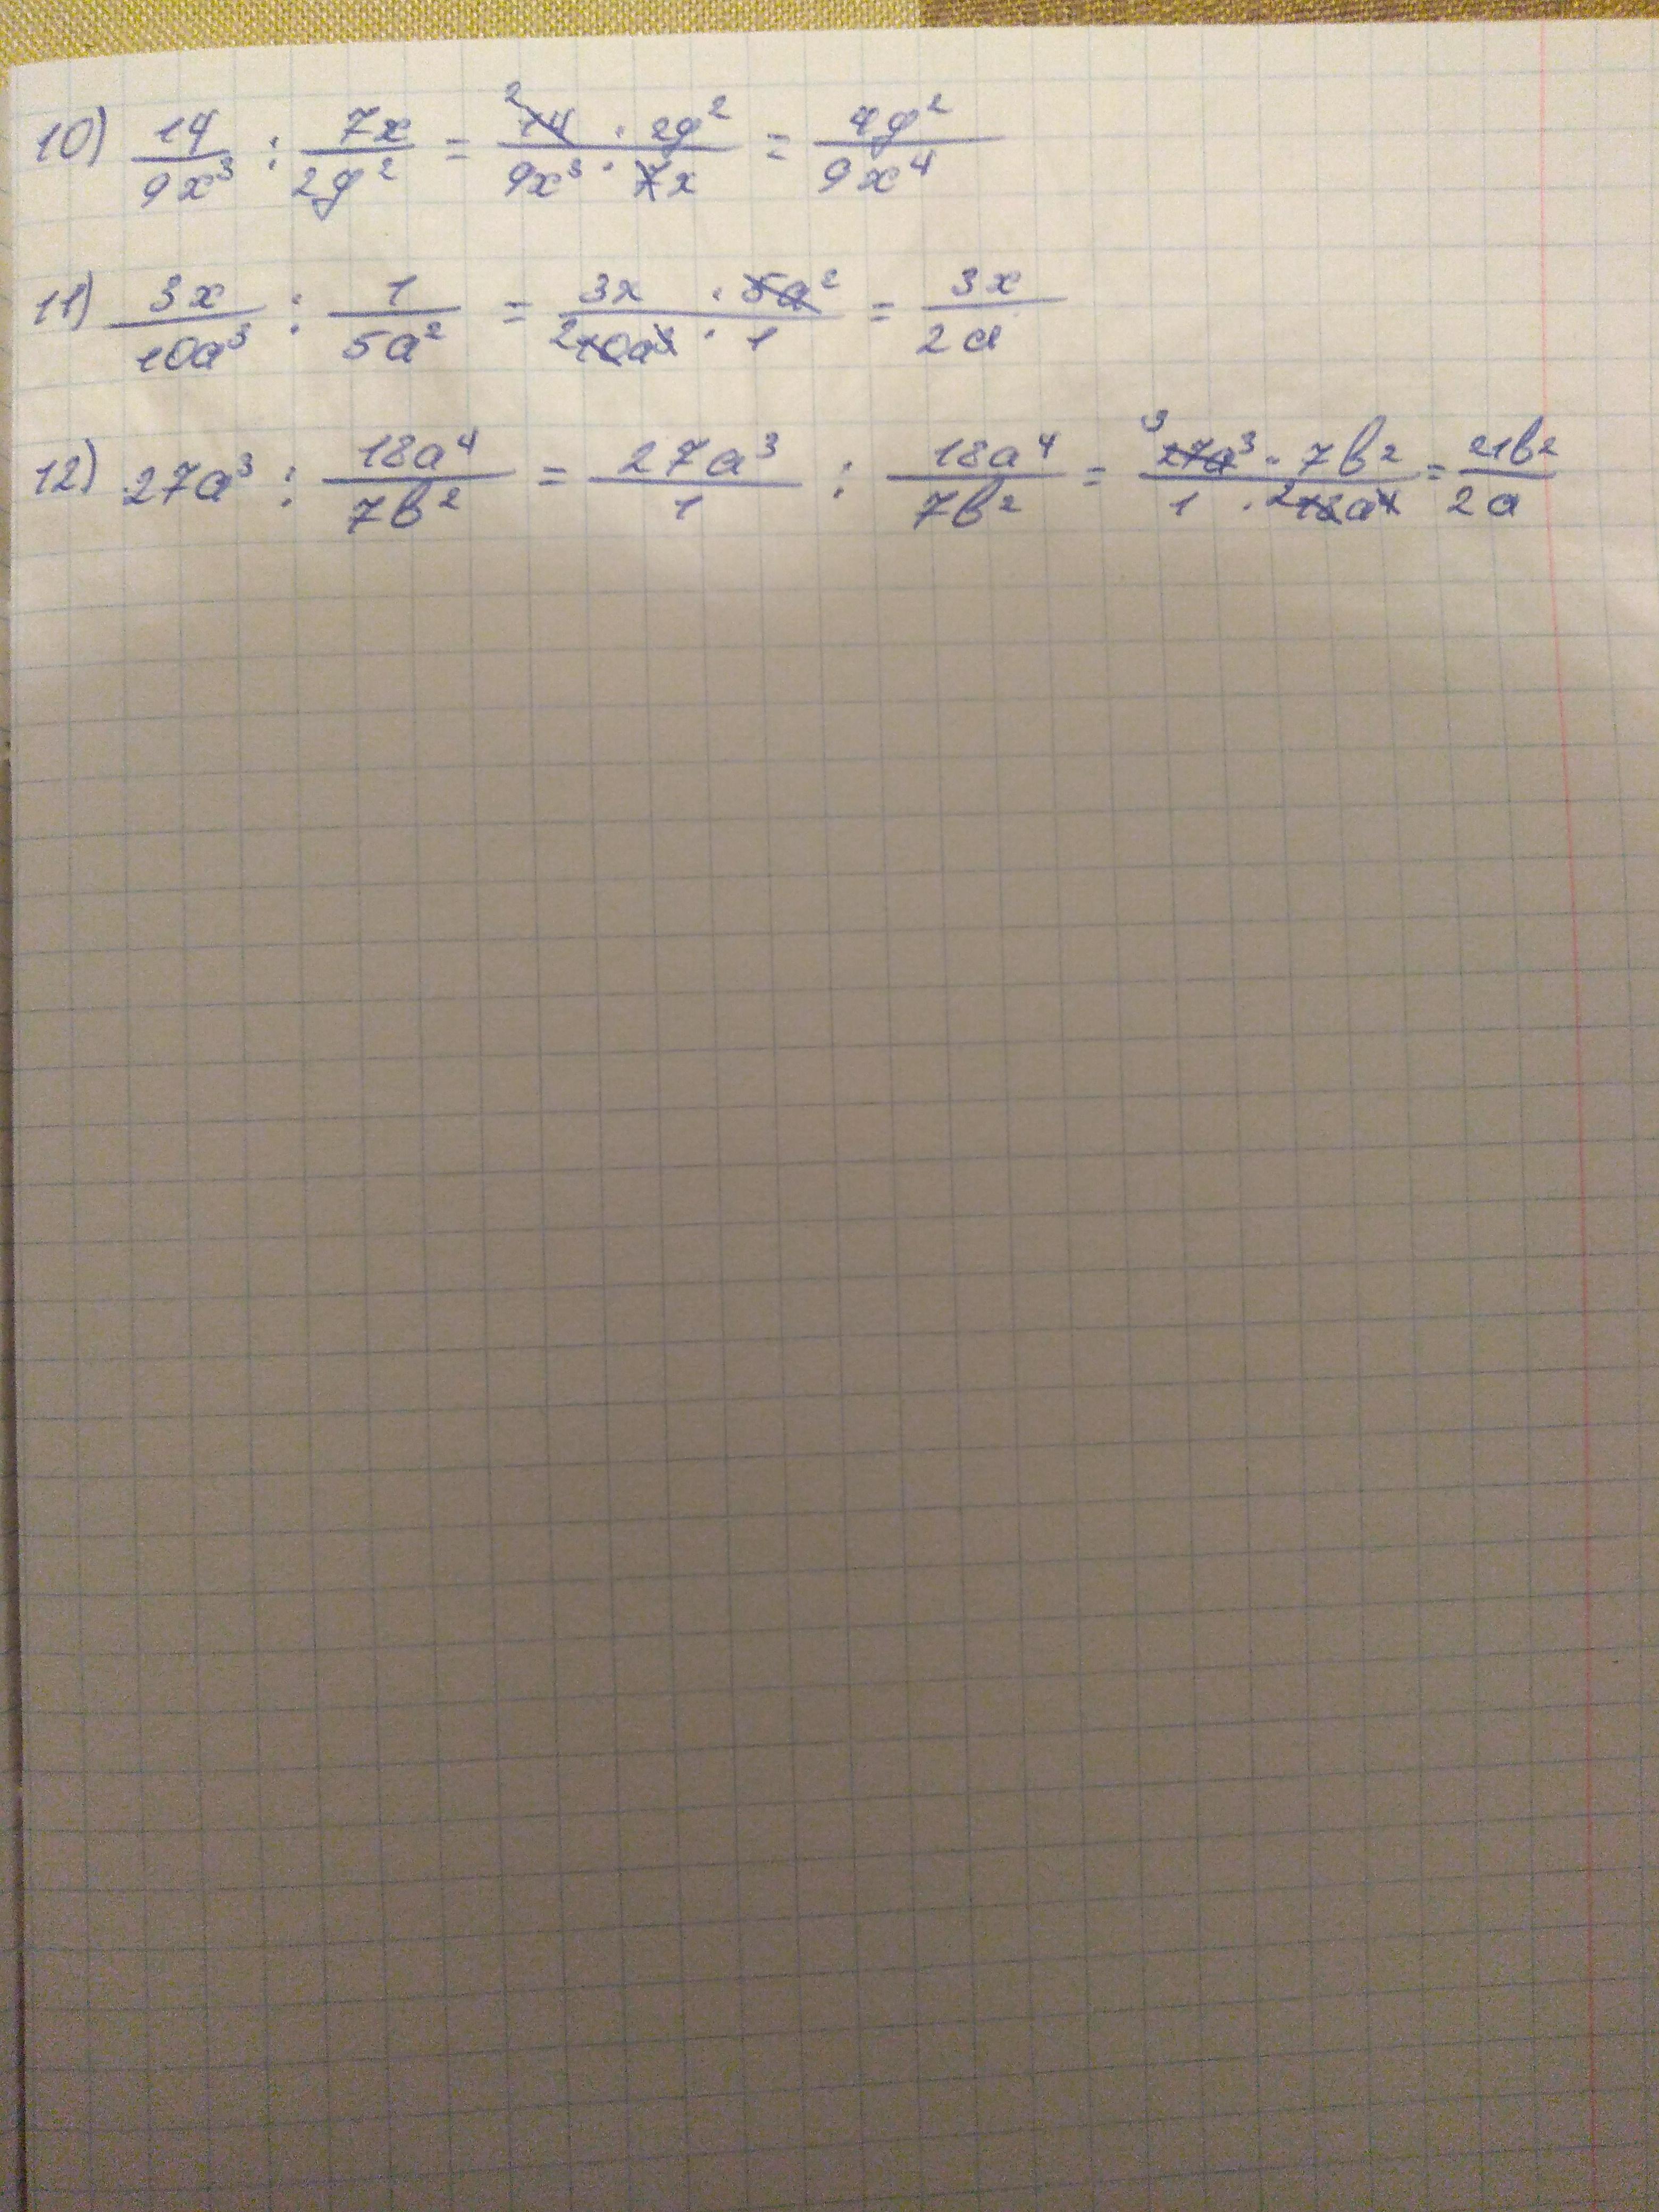 10) 14/9x³ : 7x/2y² = ²14 · 2y²/9x³ · 7x = 4y²/9x⁴
11) 3x/10a³ : 1/5a² = 3x · 5a²/²10a³ · 1 = 3x/2a
12) 27a³ : 18a⁴/7b² = 27a³/1 : 18a⁴/7b² = ³27a³ · 7b²/1 · ²18a⁴ = 21b²/2a